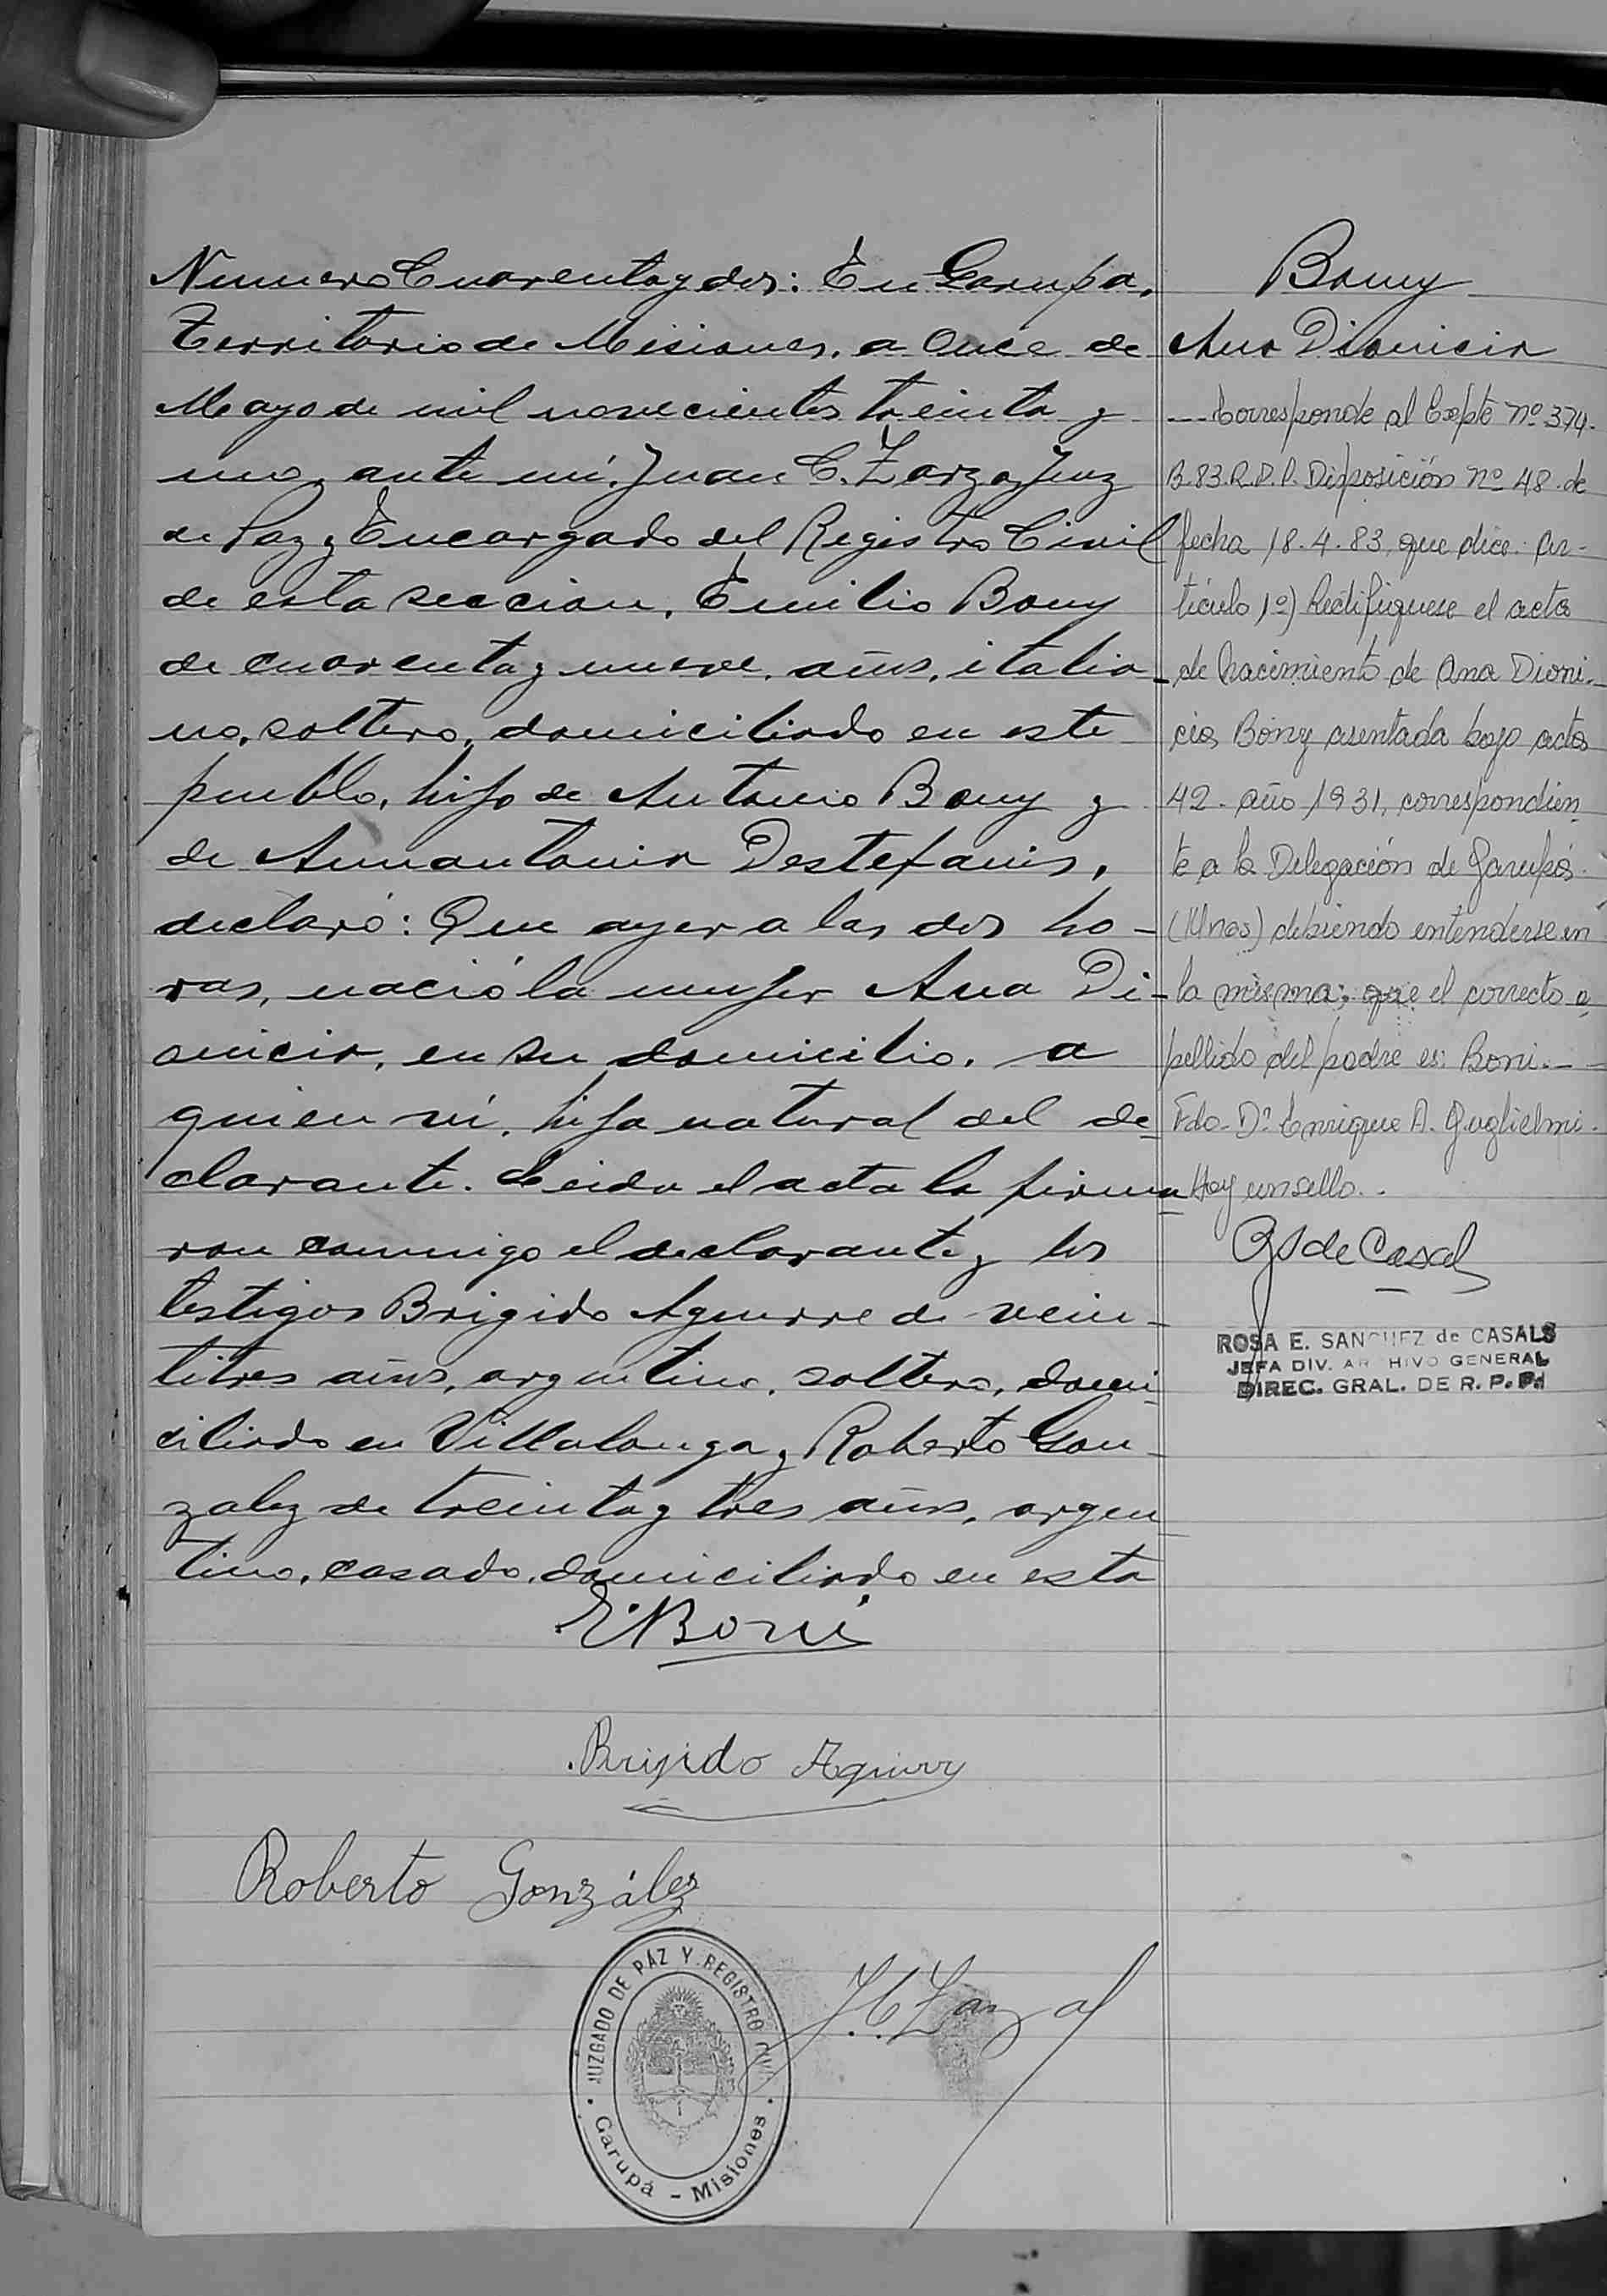 Numero Cuarenta y dos: En Garupa,
Territorio de Misiones, a Once de
Mayo de mil novecientos treinta y
uno, ante mí, Juan C. Zarza, Juez
de Paz y Encargado del Registro Civil
de esta seccion, Emilio Bony
de cuarenta y nueve, años, italia-
no, soltero, domiciliado en este
pueblo, hijo de Antonio Bony y
de Annantonia Destefanis,
declaró: Que ayer a las dos ho-
ras, nació la mujer Ana Di-
onicia, en su domicilio, a
quien ví, hija natural del de-
clarante. Leida el acta la firma-
ron conmigo el declarante y los
testigos Brigido Aguirre de vein-
titres años, argentino, soltero, domi-
ciliado en Villalonga y Roberto Gon-
zalez de treinta y tres años, argen-
tino, casado, domiciliado en esta
E. Boni
Brijido Aguirry
Roberto González
J. C. Zarza
JUZGADO DE PÁZ Y REGISTRO CIVIL
Garupá - Misiones
Bony
Ana Dionicia
--- Corresponde al Expte nº 374.
B.83.R.P.P. Disposición nº 48 de
fecha 18.4.83, que dice: Ar-
tículo 1º) Rectifiquese el acta
de Nacimiento de Ana Dioni-
cia Bony asentada bajo acta
42 - año 1931, correspondien
te a la Delegación de Garupá
(Mnes) debiendo entenderse en
la misma; que el correcto a
pellido del padre es: Boni.--
Fdo. Dº. Enrique A. Guglielmi.
Hay un sello..
RS de Casals
ROSA E. SANCHEZ de CASALS
JEFA DIV. ARCHIVO GENERAL
DIREC. GRAL. DE R. P. P.